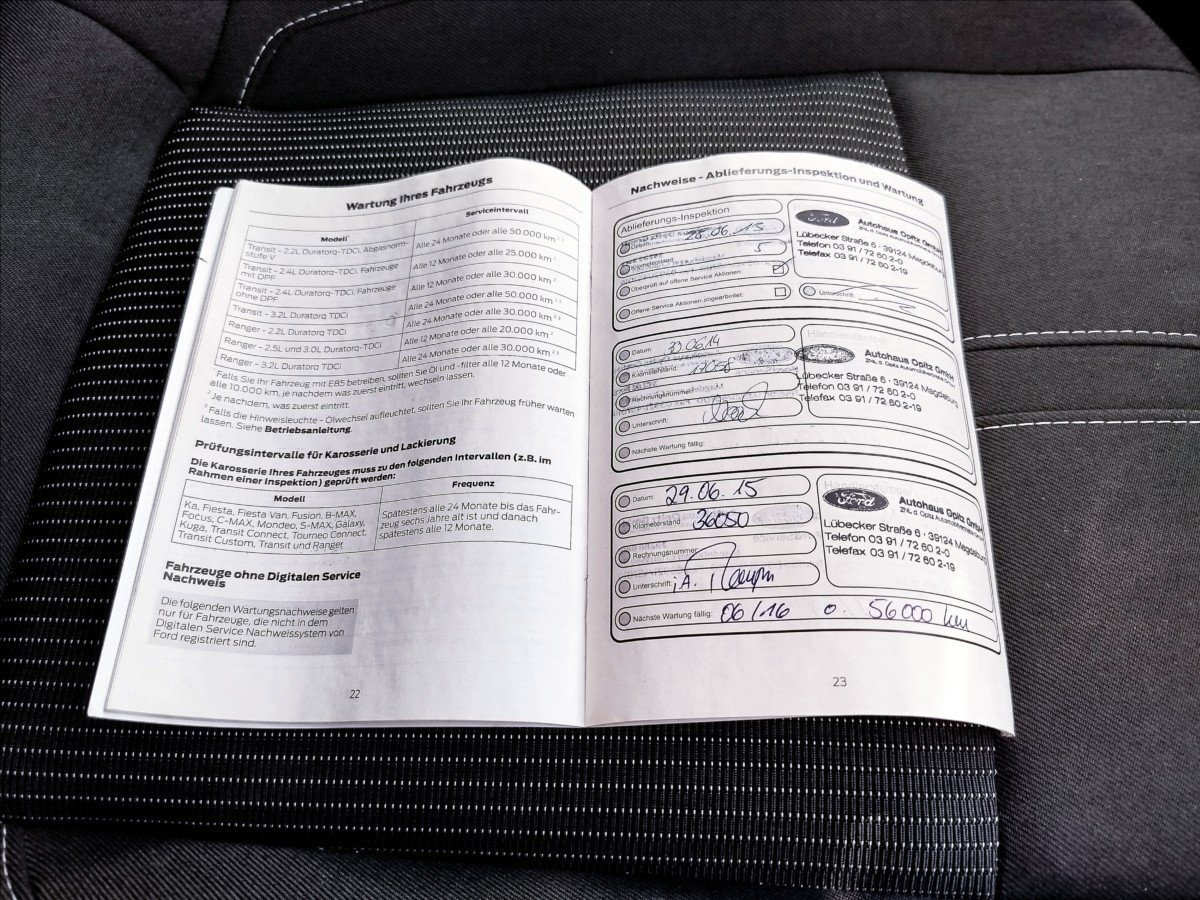 Wartung Ihres Fahrzeugs
Modell
Serviceintervall
Transit - 2.2L Duratorq-TDCi, Abgasnorm-
stufe V
Alle 24 Monate oder alle 50.000 km 2 3
Transit - 2.4L Duratorq-TDCi, Fahrzeuge
mit DPF
Alle 12 Monate oder alle 25.000 km 2
Transit - 2.4L Duratorq-TDCi, Fahrzeuge
ohne DPF
Alle 12 Monate oder alle 30.000 km 2
Transit - 3.2L Duratorq TDCi
Alle 24 Monate oder alle 50.000 km 2 3
Ranger - 2.2L Duratorq TDCi
Alle 24 Monate oder alle 30.000 km 2 3
Ranger - 2.5L und 3.0L Duratorq-TDCi
Alle 12 Monate oder alle 20.000 km 2
Ranger - 3.2L Duratorq TDCi
Alle 24 Monate oder alle 30.000 km 2 3
1 Falls Sie Ihr Fahrzeug mit E85 betreiben, sollten Sie Öl und -filter alle 12 Monate oder
alle 10.000 km, je nachdem was zuerst eintritt, wechseln lassen.
2 Je nachdem, was zuerst eintritt.
3 Falls die Hinweisleuchte - Ölwechsel aufleuchtet, sollten Sie Ihr Fahrzeug früher warten
lassen. Siehe Betriebsanleitung.
Prüfungsintervalle für Karosserie und Lackierung
Die Karosserie Ihres Fahrzeuges muss zu den folgenden Intervallen (z.B. im
Rahmen einer Inspektion) geprüft werden:
Modell
Frequenz
Ka, Fiesta, Fiesta Van, Fusion, B-MAX,
Focus, C-MAX, Mondeo, S-MAX, Galaxy,
Kuga, Transit Connect, Tourneo Connect,
Transit Custom, Transit und Ranger
Spätestens alle 24 Monate bis das Fahr-
zeug sechs Jahre alt ist und danach
spätestens alle 12 Monate.
Fahrzeuge ohne Digitalen Service
Nachweis
Die folgenden Wartungsnachweise gelten
nur für Fahrzeuge, die nicht in dem
Digitalen Service Nachweissystem von
Ford registriert sind.
22
Nachweise - Ablieferungs-Inspektion und Wartung
Ablieferungs-Inspektion
Datum: 28.06.15
Kilometerstand: 5
Überprüft auf offene Service Aktionen:
Offene Service Aktionen abgearbeitet:
Ford
Autohaus Opitz GmbH
Zhl. d. Opitz Automobilvertriebs-GmbH
Lübecker Straße 6 · 39124 Magdeburg
Telefon 03 91 / 72 60 2-0
Telefax 03 91 / 72 60 2-19
Unterschrift
Datum: 30.06.14
Kilometerstand:
Rechnungsnummer:
Unterschrift:
Nächste Wartung fällig:
Händlerstempel
Autohaus Opitz GmbH
Zhl. d. Opitz Automobilvertriebs-GmbH
Lübecker Straße 6 · 39124 Magdeburg
Telefon 03 91 / 72 60 2-0
Telefax 03 91 / 72 60 2-19
Datum: 29.06.15
Kilometerstand: 36050
Rechnungsnummer:
Unterschrift: i.A.
Nächste Wartung fällig: 06/16 o. 56000 km
Händlerstempel
Ford
Autohaus Opitz GmbH
Zhl. d. Opitz Automobilvertriebs-GmbH
Lübecker Straße 6 · 39124 Magdeburg
Telefon 03 91 / 72 60 2-0
Telefax 03 91 / 72 60 2-19
23